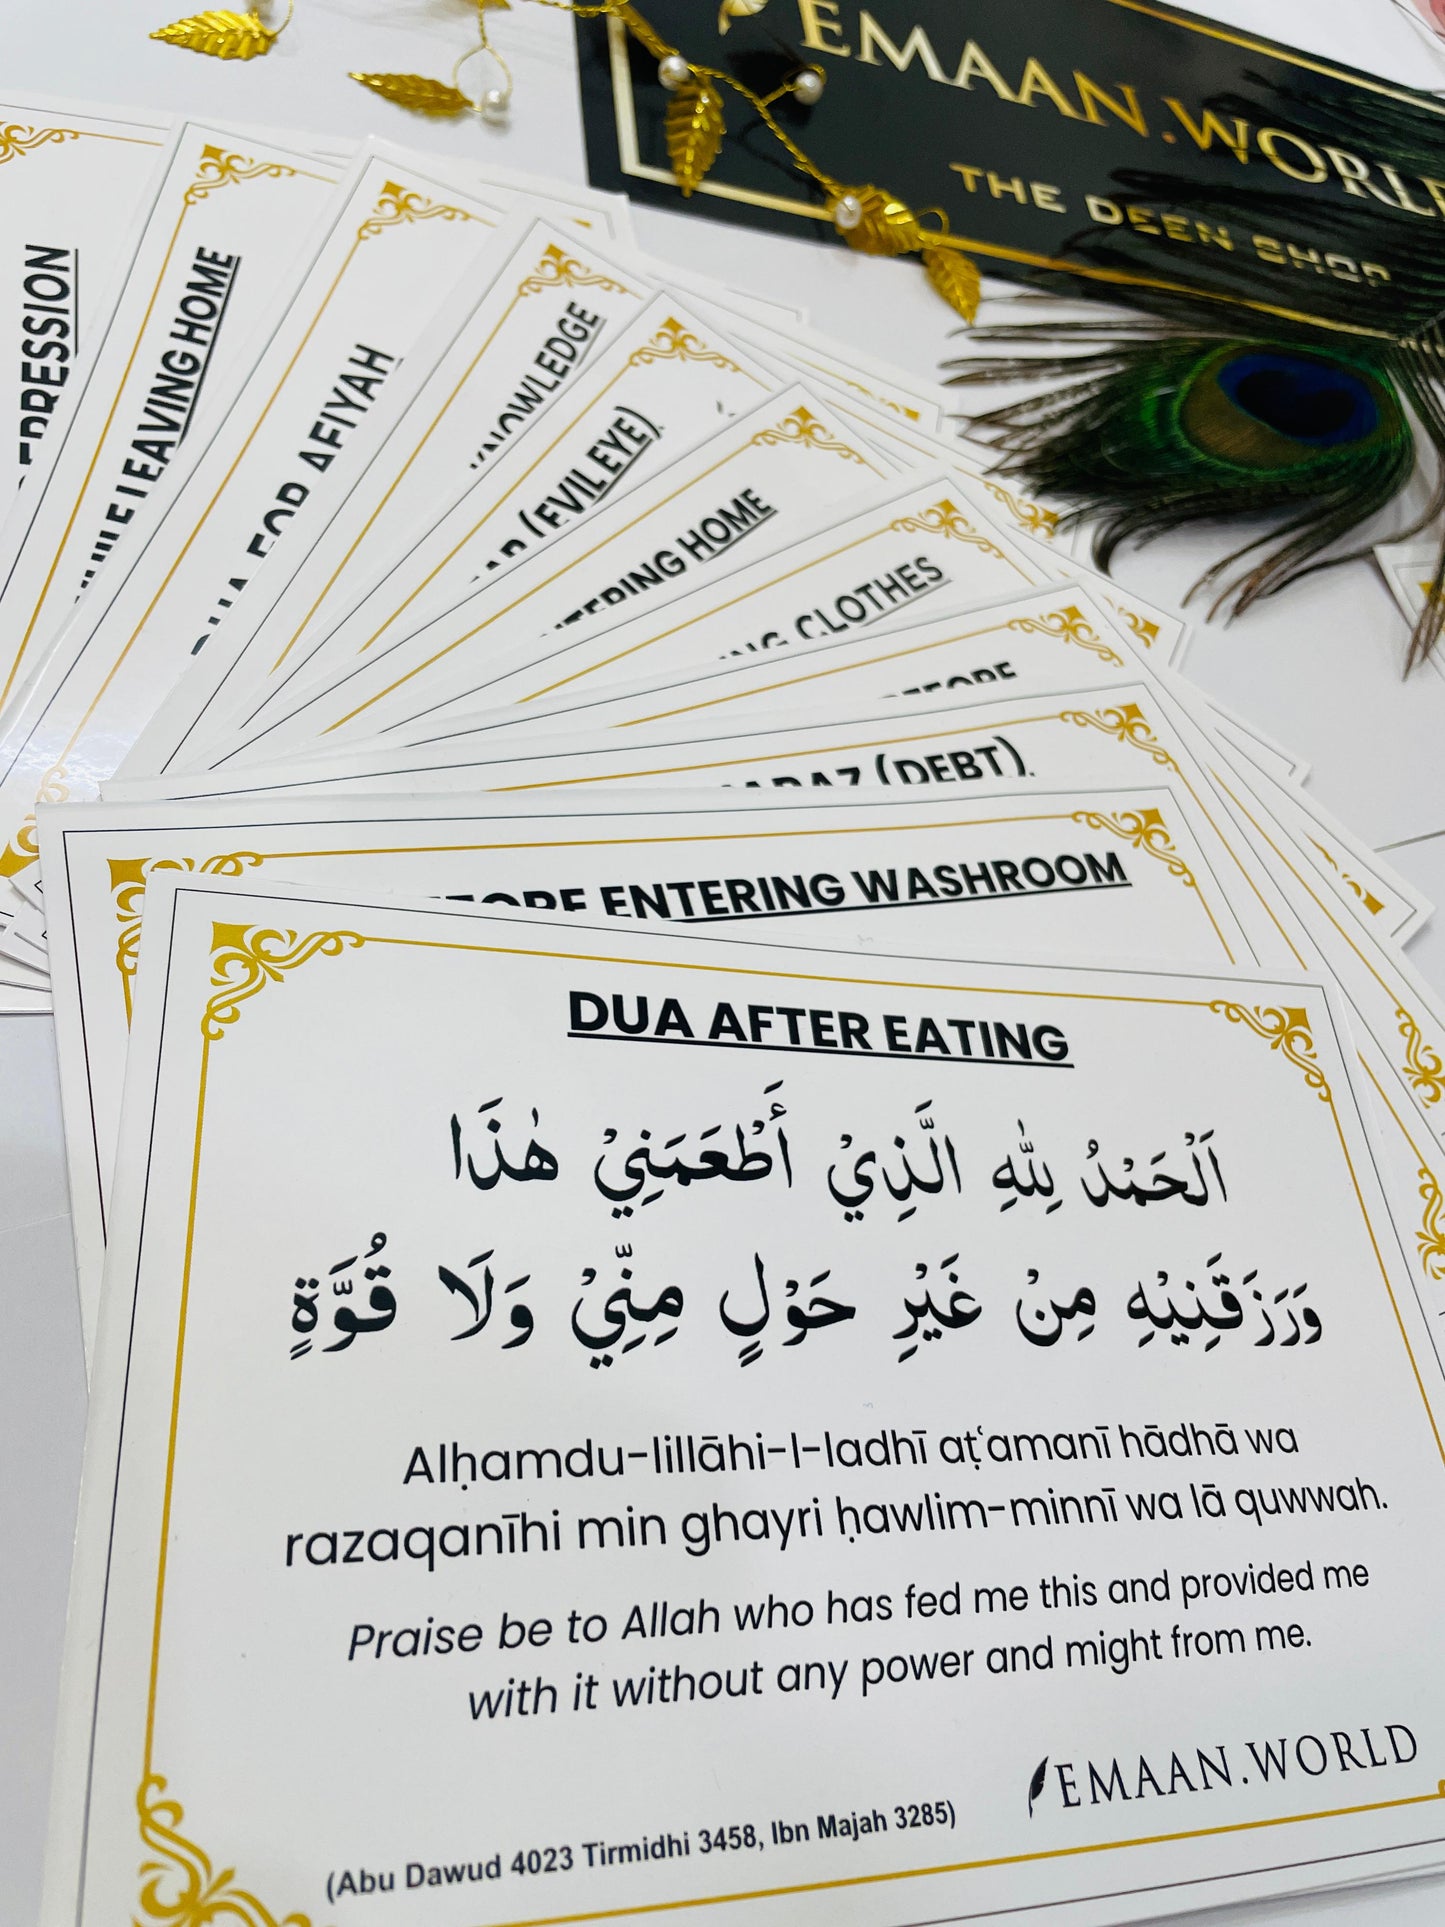 EMAAN.WORLD
THE DEEN SHOP
LEAVING HOME
DUA FOR AFIYAH
KNOWLEDGE
(EVIL EYE).
ENTERING HOME
CLOTHES
BEFORE
(DEBT).
BEFORE ENTERING WASHROOM
DUA AFTER EATING
اَلْحَمْدُ لِلّٰهِ الَّذِيْ أَطْعَمَنِيْ هٰذَا
وَرَزَقَنِيْهِ مِنْ غَيْرِ حَوْلٍ مِنِّيْ وَلَا قُوَّةٍ
Alḥamdu-lillāhi-l-ladhī aṭʿamanī hādhā wa
razaqanīhi min ghayri ḥawlim-minnī wa lā quwwah.
Praise be to Allah who has fed me this and provided me
with it without any power and might from me.
EMAAN.WORLD
(Abu Dawud 4023 Tirmidhi 3458, Ibn Majah 3285)